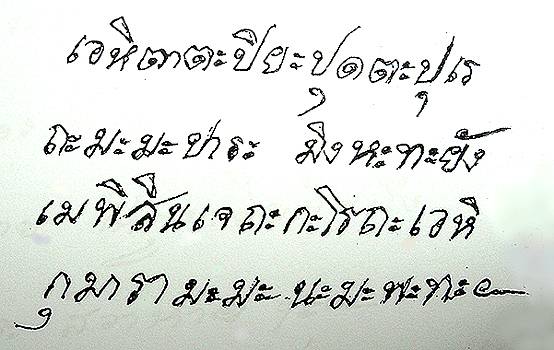 เอหิตาตะปิยะปุตตะปุเร
ถะมะมะปาระ มิงหะทะยัง
เมพิสินเจถะกะโรถะเอหิ
กุมารา มะมะ นะมะพะทะ๛